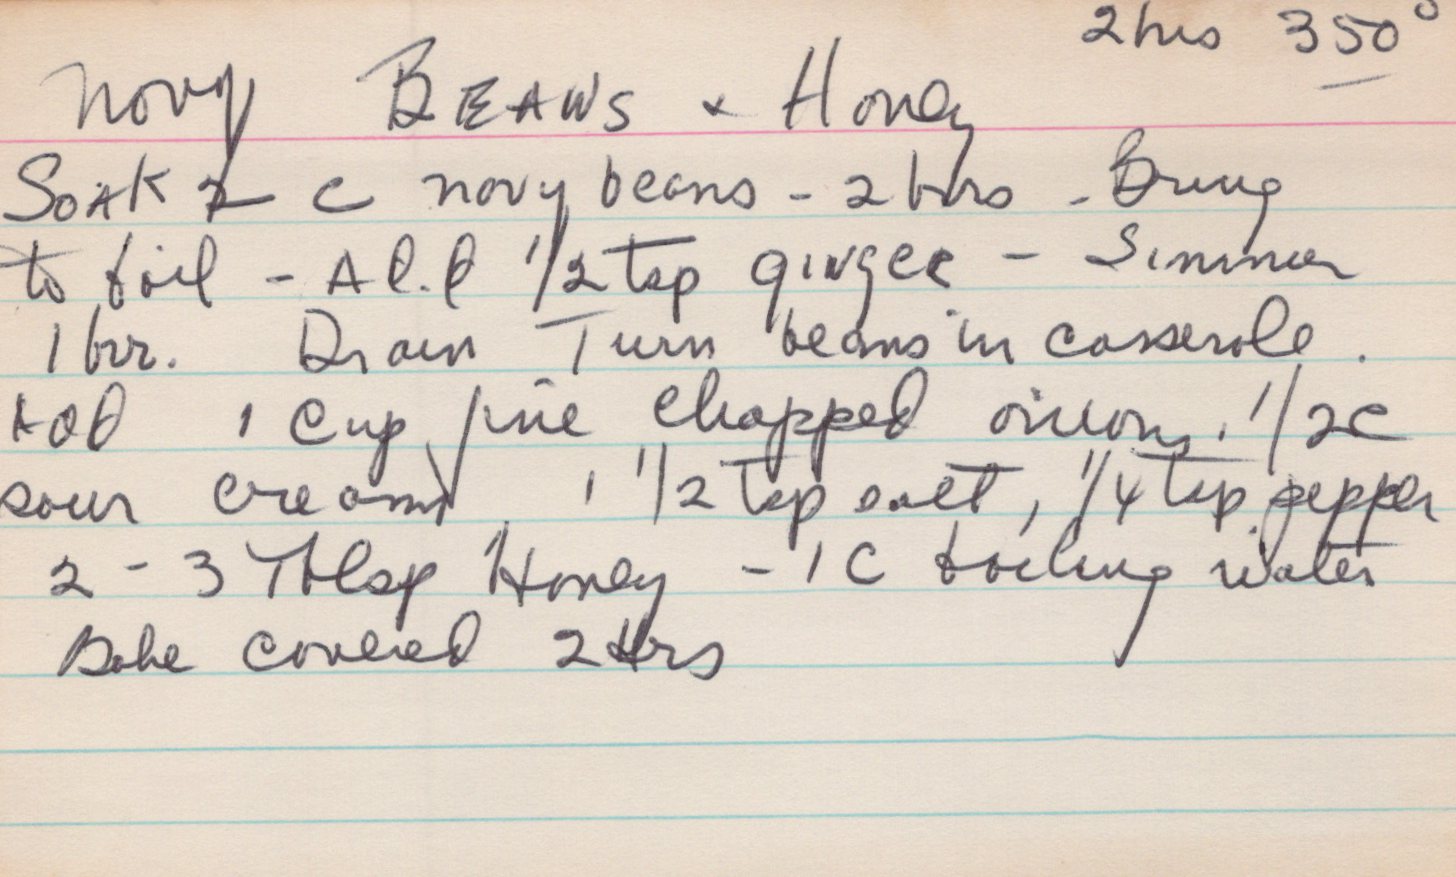 2 hrs 350°
Navy BEANS + Honey
SOAK 2 c navy beans - 2 hrs - Bring
to boil - Add 1/2 tsp ginger - Simmer
1 hr. Drain Turn beans in casserole.
Add 1 cup fine chopped onion, 1/2 c
sour cream, 1 1/2 tsp salt, 1/4 tsp pepper
2 - 3 Tblsp Honey - 1 C boiling water
Bake covered 2 Hrs